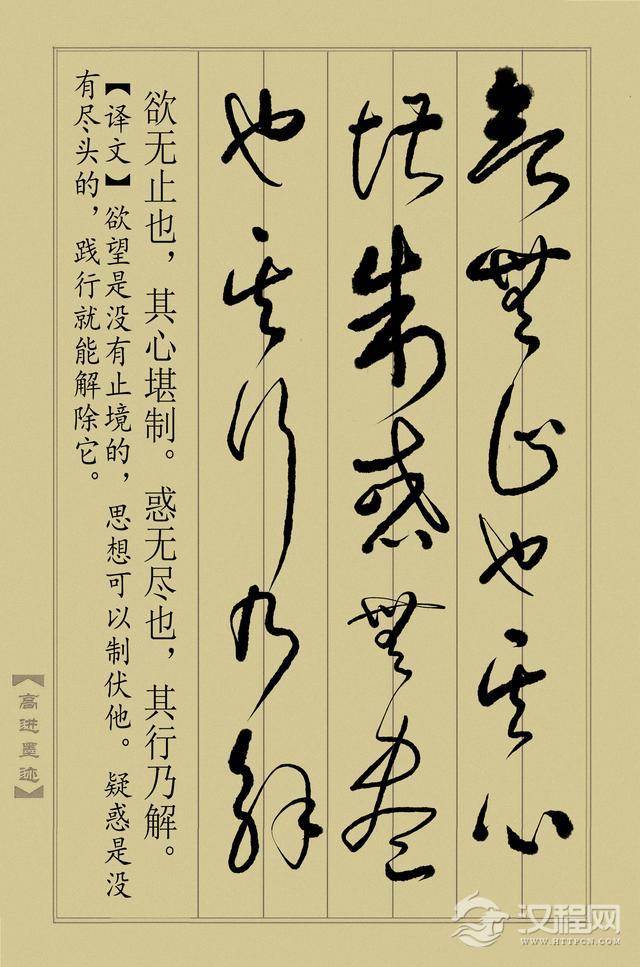 欲無止也其心
堪制惑無盡
也其行乃解
欲无止也，其心堪制。惑无尽也，其行乃解。
【译文】欲望是没有止境的，思想可以制伏他。疑惑是没
有尽头的，践行就能解除它。
【高进墨迹】
汉程网
WWW.HTTPCN.COM